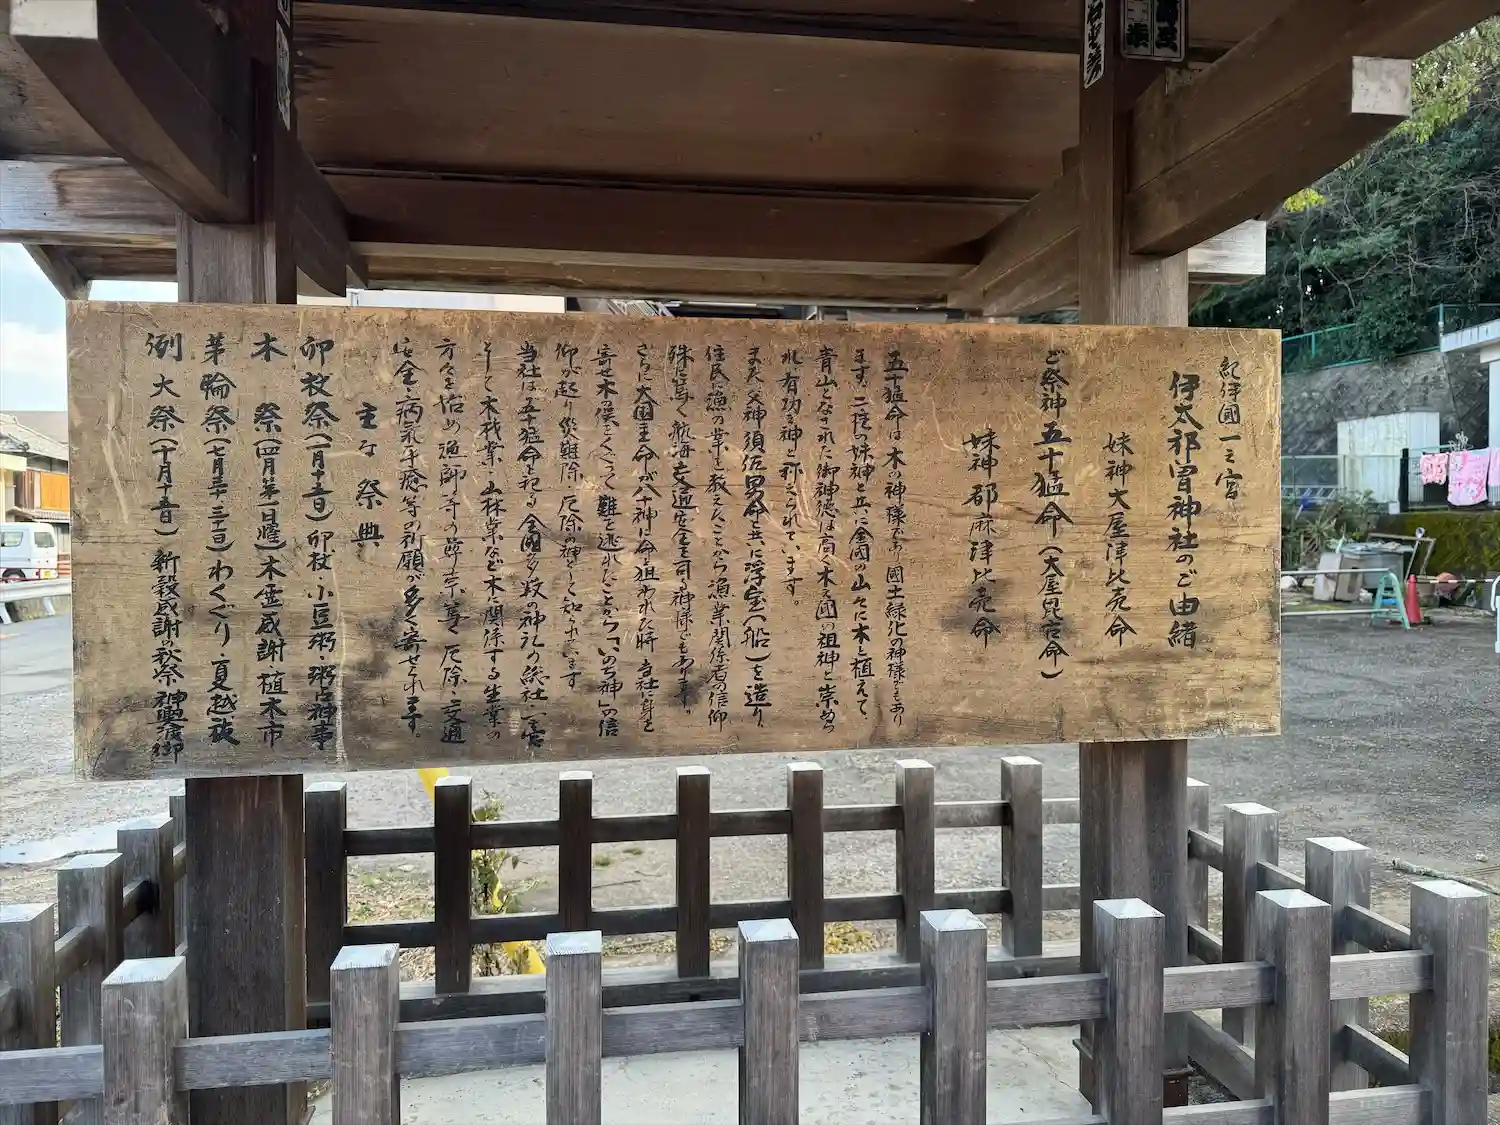 紀伊國一之宮
伊太祁曽神社のご由緒
妹神大屋津比売命
ご祭神五十猛命(大屋毘古命)
妹神都麻津比売命
五十猛命は木の神様であり國土緑化の神様でもあり
ます。二柱の妹神と共に全國の山々に木を植えて、
青山となされた御神徳は高く木之國の祖神と崇めら
れ有功之神と称えられています。
また父神須佐男命と共に浮宝(船)を造り、
住民に漁の業を教えたことから漁業関係者の信仰
殊に篤く航海交通安全を司る神様でもあります。
さらに大国主命が八十神に命を狙われた時 当社に身を
寄せ木俣をくぐって難を逃れたことからいのち神」の信
仰が起り災難除 厄除の神として知られています
当社は五十猛命を祀る全國多数の神社の総社 一宮
として木材業 山林業など木に関係する生業の
方々を始め漁師等の尊崇篤く 厄除 交通
安全 病気平癒等の祈願が多く寄せられます
主な祭典
卯杖祭(一月十五日)卯杖・小豆粥 粥占神事
木祭(四月第一日曜)木霊感謝 植木市
茅輪祭(七月三十 三十一日)わくぐり・夏越祓
例大祭(十月十五日)新穀感謝の秋祭 神輿渡御